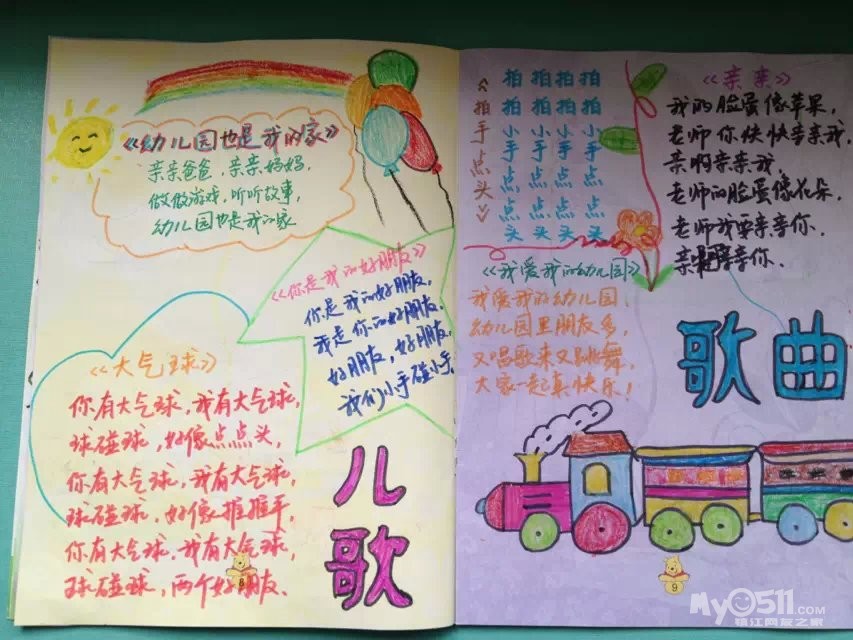 《幼儿园也是我的家》
亲亲爸爸,亲亲妈妈,
做做游戏,听听故事,
幼儿园也是我的家
《你是我的好朋友》
你是我的好朋友,
我是你的好朋友,
好朋友,好朋友,
我们小手碰小手。
《大气球》
你有大气球,我有大气球,
球碰球,好像点点头,
你有大气球,我有大气球,
球碰球,好像推推手,
你有大气球,我有大气球,
球碰球,两个好朋友、
儿歌
8
《拍手点头》
拍拍小手点点头
拍拍小手点点头
拍拍小手点点头
拍拍小手点点头
《亲亲》
我的脸蛋像苹果,
老师你快快亲亲我,
亲啊亲亲我,
老师的脸蛋像花朵,
老师我要亲亲你、
亲啊亲亲你、
《我爱我的幼儿园》
我爱我的幼儿园,
幼儿园里朋友多,
又唱歌来又跳舞,
大家一起真快乐!
歌曲
9
My0511.com
镇江网友之家